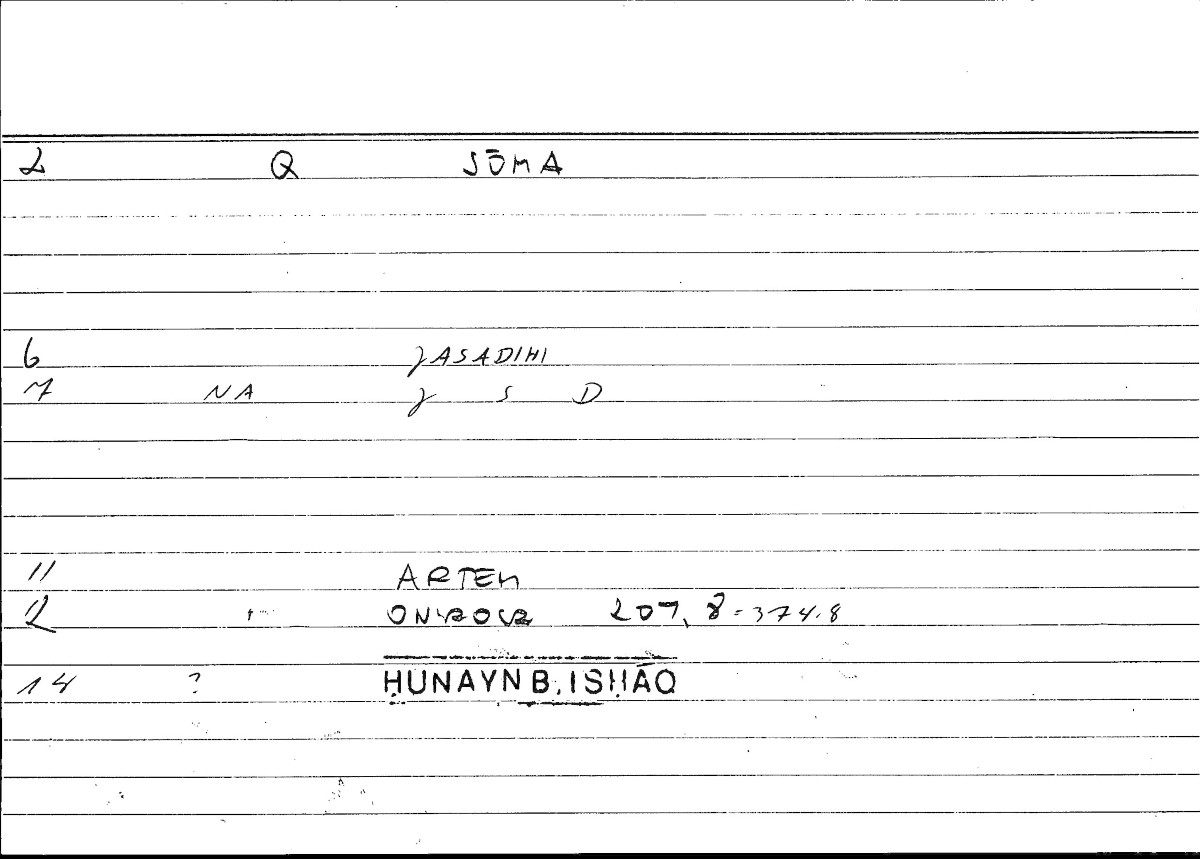 2 Q SŌMA
6 JASADIHI
7 NA J S D
11 ARTEM
12 ONIROCR 207, 8 = 374.8
14 ? ḤUNAYN B. ISḤĀQ